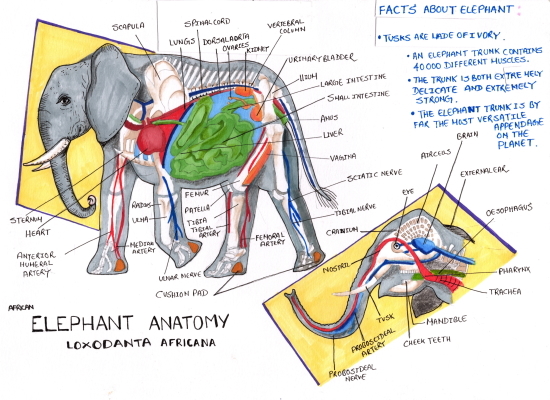 FACTS ABOUT ELEPHANT :
• TUSKS ARE MADE OF IVORY.
• AN ELEPHANT TRUNK CONTAINS
40 000 DIFFERENT MUSCLES.
• THE TRUNK IS BOTH EXTREMELY
DELICATE AND EXTREMELY
STRONG.
• THE ELEPHANT TRUNK IS BY
FAR THE MOST VERSATILE
APPENDAGE
ON THE
PLANET.
SCAPULA
SPINALCORD
VERTEBRAL
COLUMN
LUNGS
DORSALAORTA
OVARIES
KIDNEY
URINARYBLADDER
ILIUM
LARGE INTESTINE
SMALL INTESTINE
ANUS
LIVER
VAGINA
SCIATIC NERVE
TIBIAL NERVE
FEMUR
PATELLA
TIBIA
TIBIAL
ARTERY
FEMORAL
ARTERY
RADIUS
ULNA
STERNUM
HEART
ANTERIOR
HUMERAL
ARTERY
MEDIAN
ARTERY
ULNAR NERVE
CUSHION PAD
AFRICAN
ELEPHANT ANATOMY
LOXODANTA AFRICANA
BRAIN
AIRCEOS
EXTERNAL EAR
EYE
OESOPHAGUS
CRANIUM
NOSTRIL
PHARYNX
TRACHEA
MANDIBLE
CHEEK TEETH
TUSK
PROBOSCIDEAL
ARTERY
PROBOSIDEAL
NERVE